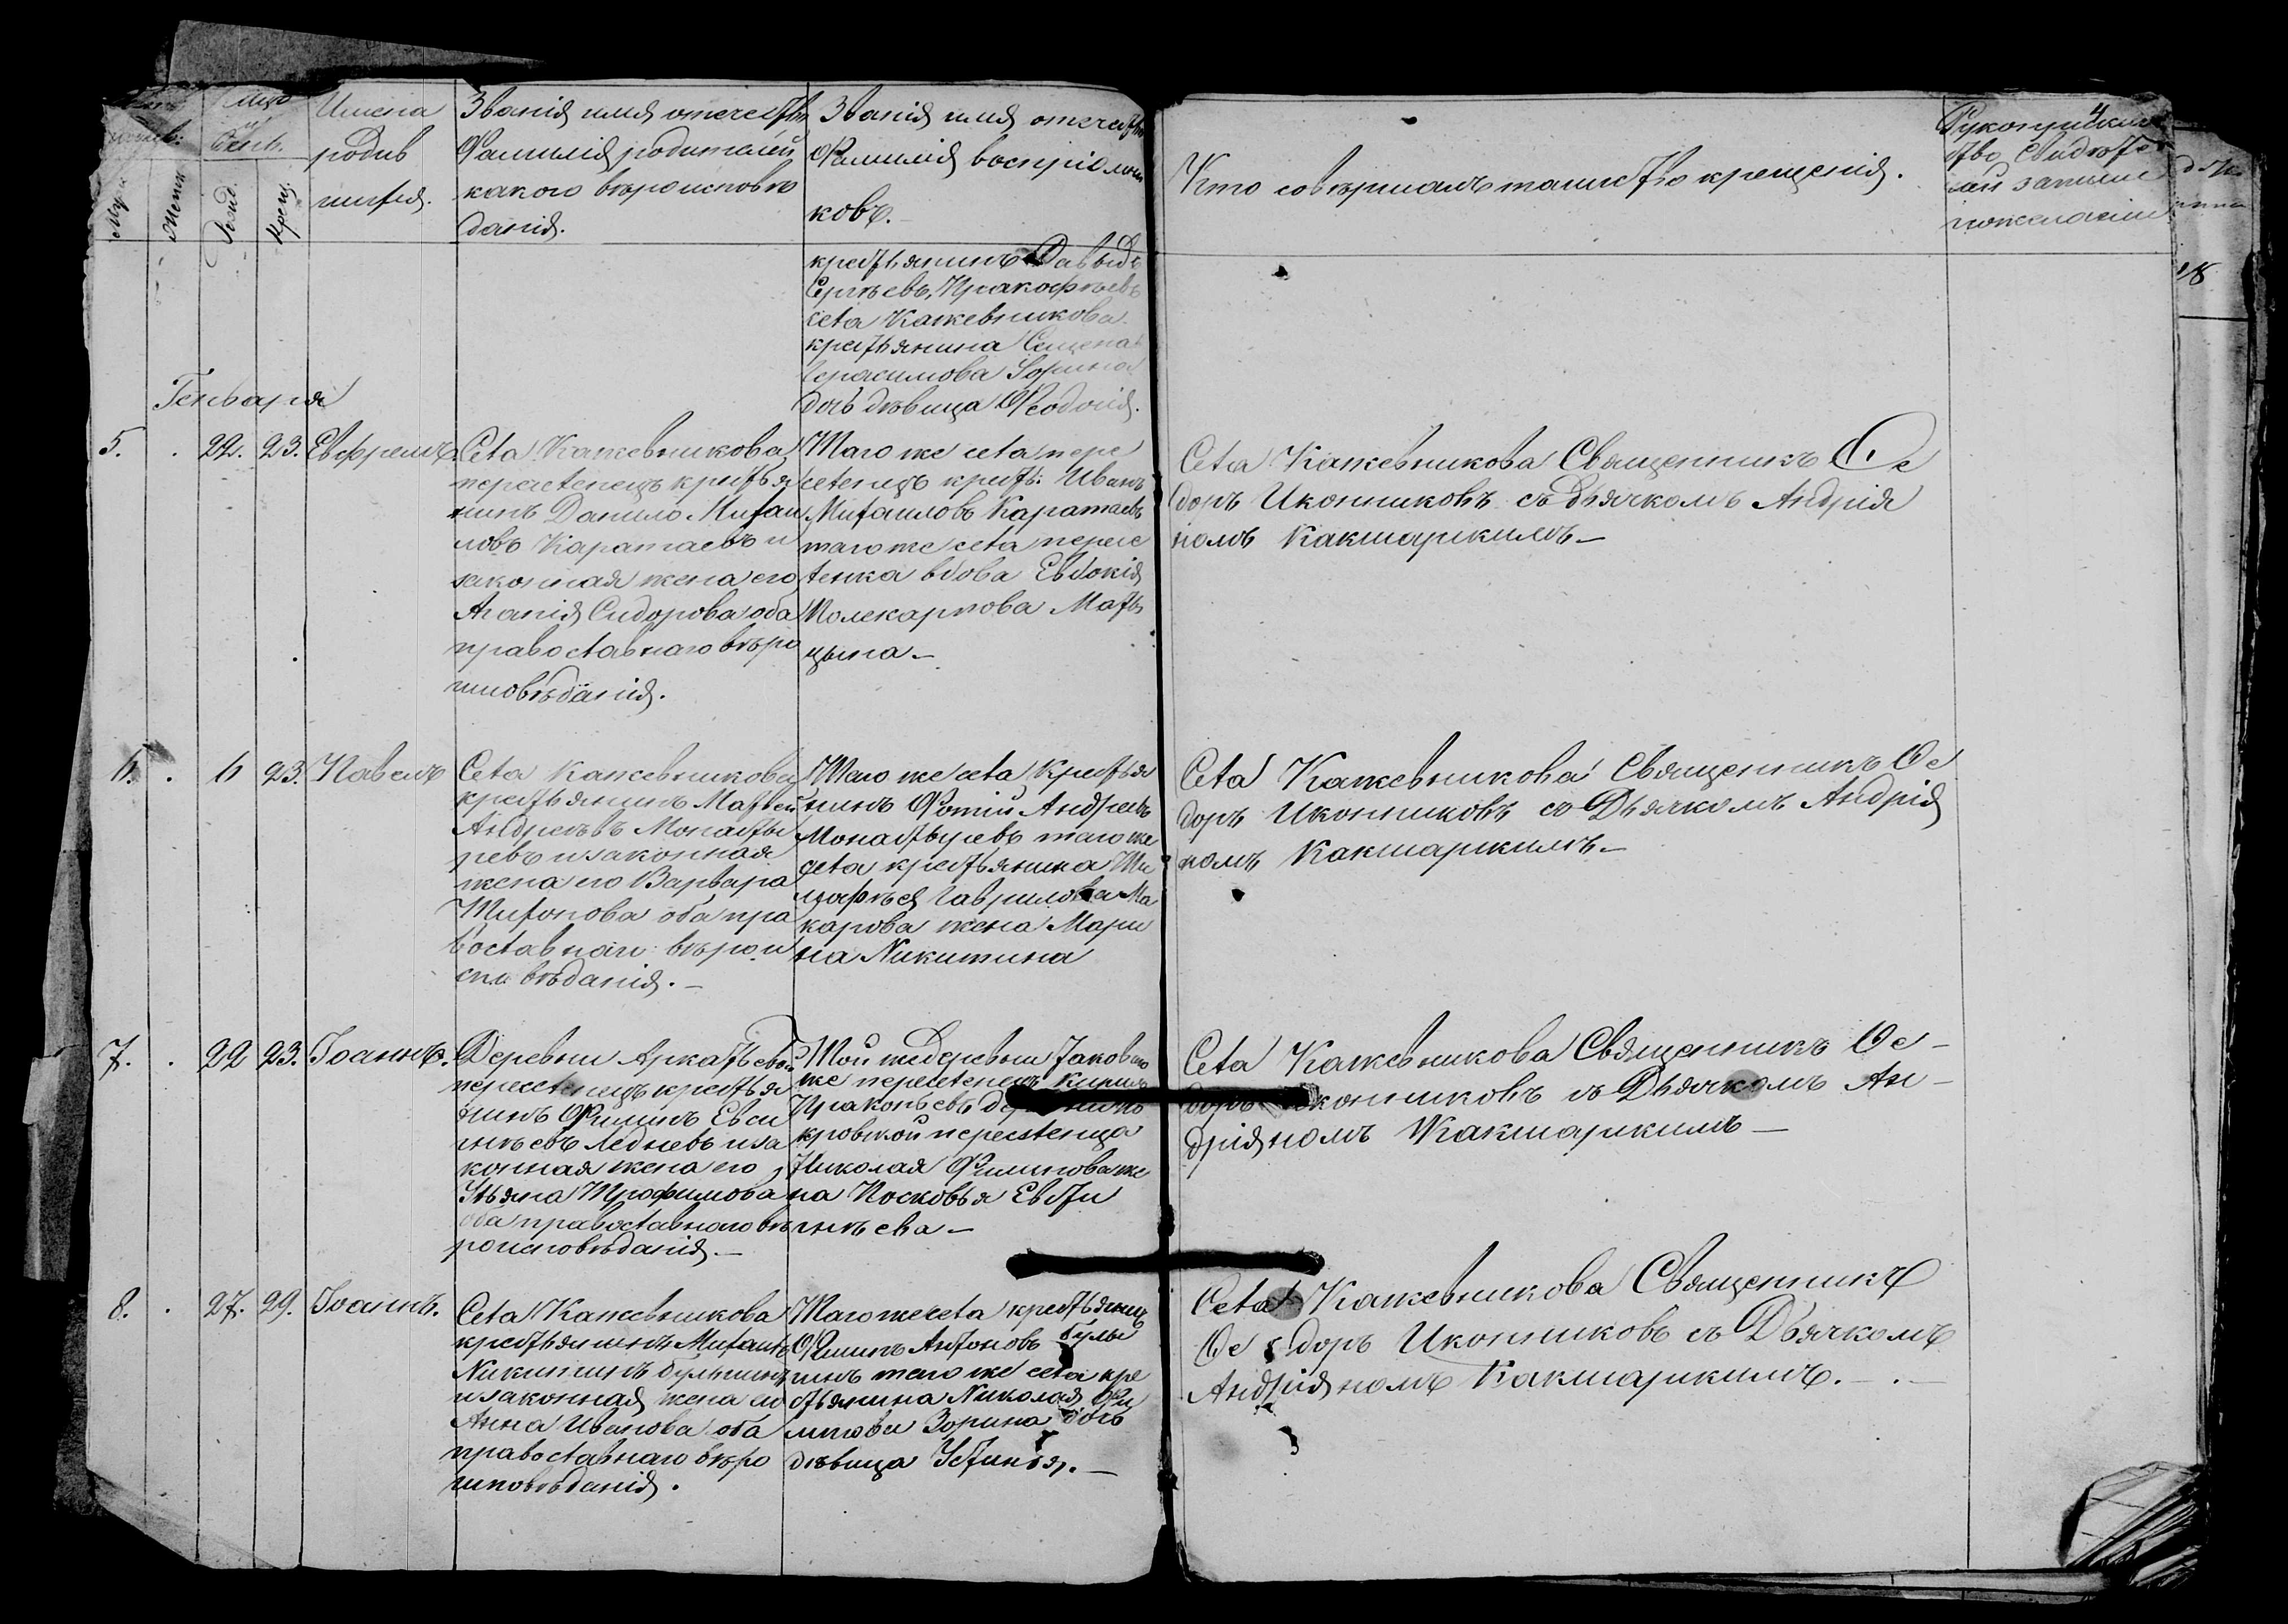 Имена
родив
шихся.
Званія имя отечество
Фамилія родителей
какого вѣроисповѣ
данія.
Званія имя отечество
Фамилія воспріемни
ковъ.
Кто совершалъ таинство крещенія.
4
Рукоприклад
ство свидѣте
лей записи
по желанію
Муж.
Женск
Рожд.
Крещ.
крестьянинъ Давыдъ
Сергѣевъ Пракофьевъ
села Кажевникова
крестьянина Семена
Герасимова Зорина
дочь дѣвица Ѳеодосія.
Генваря
5.
22.
23.
Евфремъ.
Села Кажевникова
переселенецъ крестья
нинъ Данило Михаи
ловъ Каратаевъ и
законная жена его
Агапія Сидорова оба
православнаго вѣро
исповѣданія.
Таго же села пере
селенецъ кресть: Иванъ
Михаиловъ Каратаевъ
таго же села пересе
ленка вдова Евдокія
Полекарпова
цына
Села Кажевникова Священникъ Ѳе
доръ Иконниковъ съ дьячкомъ Андрія
номъ Какшаркимъ
6.
6
23.
Павелъ
Села Кажевникова
крестьянинъ Матвей
Андреевъ Монасты
ревъ и законная
жена его Варвара
Тихонова оба пра
вославнаго вѣрои
споведанія.
Таго же села крестья
нинъ Фотій Андреевъ
Монастыревъ таго же
села крестьянина Ти
мофѣя Гаврилова Ма
карова жена Мари
на Никитина
Села Кажевникова Священникъ Ѳе
доръ Иконниковъ со Дьячкомъ Андрія
номъ Какшаркимъ
7.
22
23.
Іоаннъ.
Деревни
переселенецъ крестья
нинъ Филипъ Евси
гнѣевъ Ледневъ и за
конная жена его
Ульяна Трофимова
оба православнаго вѣ
роисповѣданія.
Той же деревни
же переселенецъ Кирилъ
Пракопьевъ
кровской переселенца
Николая Филипова же
на Посковья Евсти
гнѣева
Села Кажевникова Священникъ Ѳе
доръ Иконниковъ съ Дьячкомъ Ан
дріяномъ Какшаркимъ
8.
27.
29.
Іоаннъ.
Села Кажевникова
крестьянинъ Михаилъ
Никитинъ Булыгинъ
и законная жена его
Анна Иванова оба
православнаго вѣро
исповѣданія.
Таго же села крестьянинъ
Филипъ Антоновъ Булы
гинъ таго же села кре
стьянина Николая Фи
липова Зорина дочь
дѣвица Устинья.
Села Кажевникова Священникъ
Ѳе доръ Иконниковъ съ Дьячкомъ
Андріяномъ Какшаркимъ.